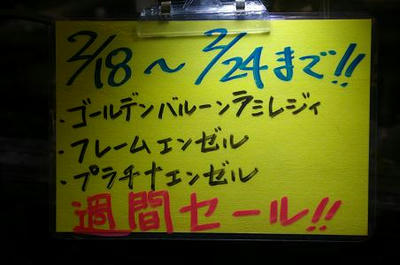 2/18〜2/24まで!!
・ゴールデンバルーンラミレジィ
・フレームエンゼル
・プラチナエンゼル
週間セール!!